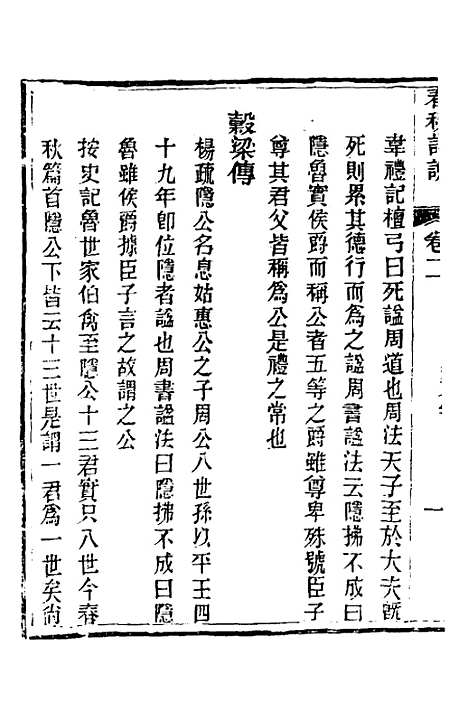 卷二
一
韋禮記檀弓曰死謚周道也周法天子至於大夫旣
死則累其德行而爲之謚周書謚法云隱拂不成曰
隱魯實侯爵而稱公者五等之爵雖尊卑殊號臣子
尊其君父皆稱爲公是禮之常也
穀梁傳
楊疏隱公名息姑惠公之子周公八世孫以平王四
十九年卽位隱者謚也周書謚法曰隱拂不成曰隱
魯雖侯爵據臣子言之故謂之公
按史記魯世家伯禽至隱公十三君實只八世今春
秋篇首隱公下皆云十三世是謂一君爲一世矣尚